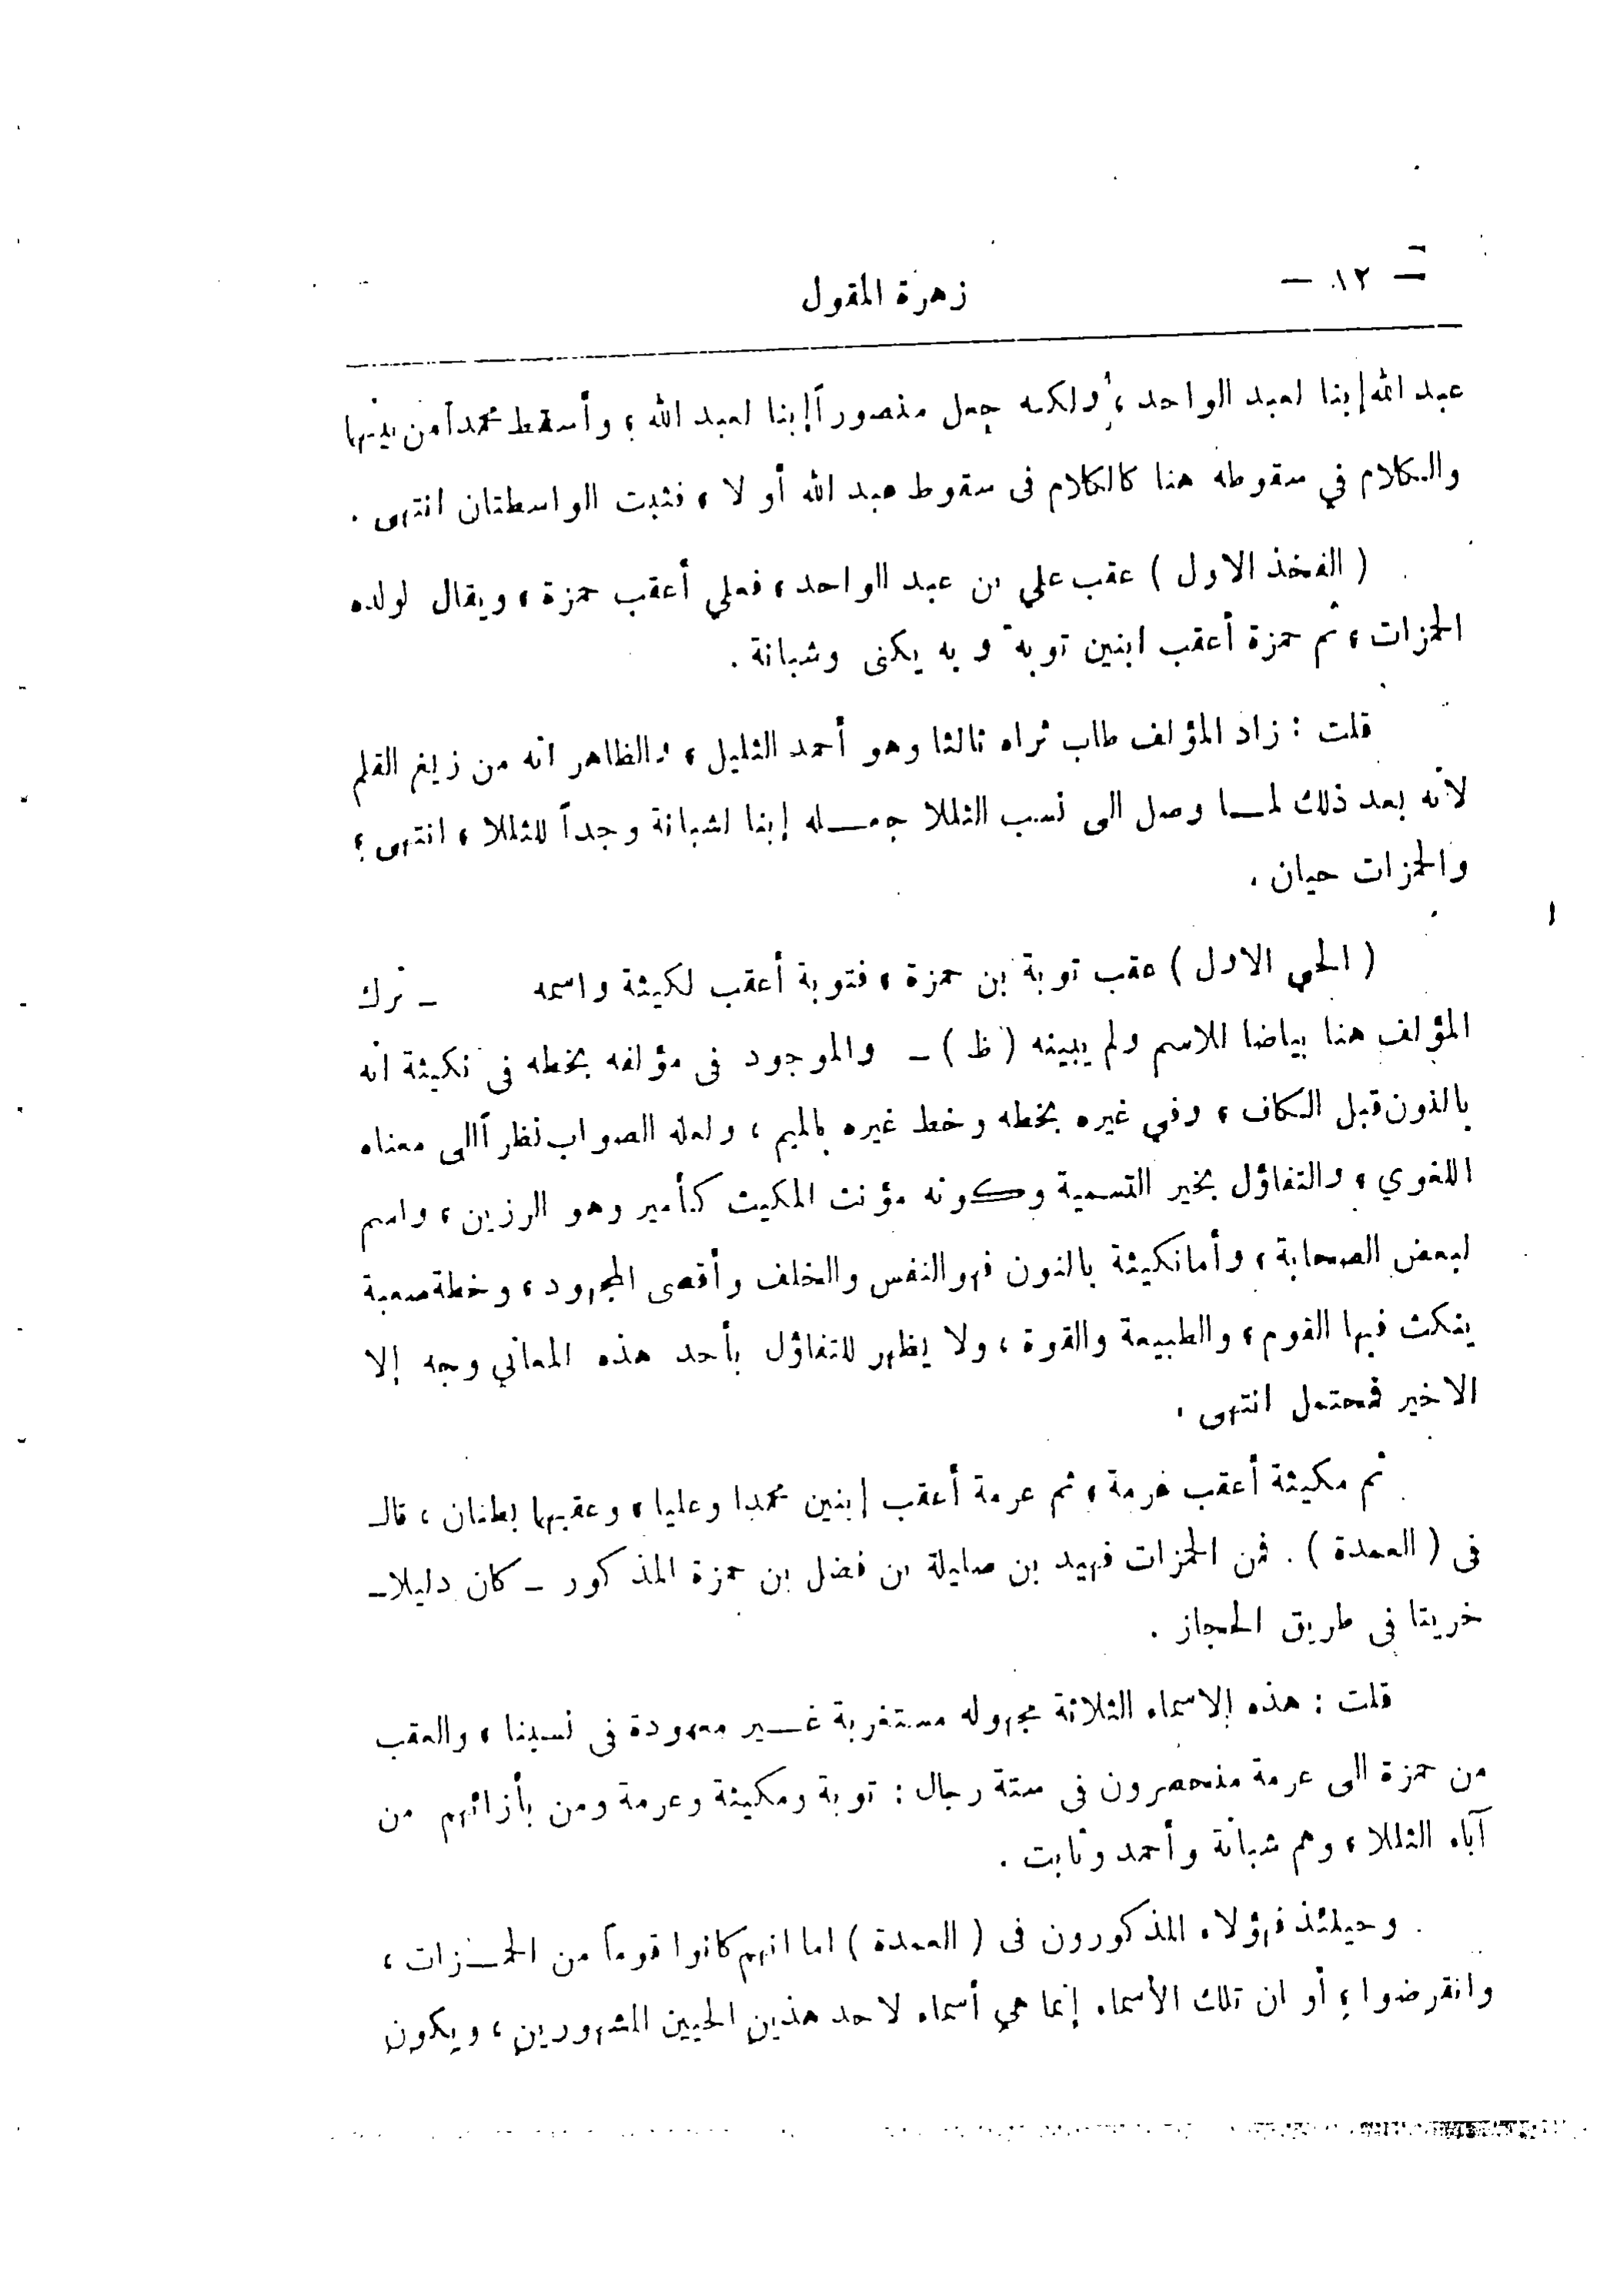 — ١٢ —
زهرة المقول
عبد الله إبنا لعبد الواحد ، ولكنه جعل منصوراً إبنا لعبد الله ؛ وأسقط محمداً من بينها
والكلام في سقوطه هنا كالكلام فى سقوط عبد الله أولا ، فثبت الواسطتان انتهى .
( الفخذ الاول ) عقب علي بن عبد الواحد ، فعلي أعقب حمزة ، ويقال لولده
الحمزات ، ثم حمزة أعقب ابنين توبة و به يكنى وشبانة .
قلت : زاد المؤلف طاب ثراه ثالثا وهو أحمد الثليل ، والظاهر انه من زيغ القلم
لأنه بعد ذلك لمـا وصل الى نسب الثللا جعـله إبنا لشبانة وجداً للثللا ، انتهى ؛
والحمزات حيان .
( الحي الاول ) عقب توبة بن حمزة ، فتوبة أعقب لكيثة واسمه ـ ترك
المؤلف هنا بياضا للاسم ولم يبينه ( ظ ) ـ والموجود فى مؤلفه بخطه فى نكيثة انه
بالنون قبل الكاف ، وفي غيره بخطه وخط غيره بالميم ، ولعله الصواب نظراً الى معناه
اللغوي ، والتفاؤل بخير التسمية وكونه مؤنث المكيث كأمير وهو الرزين ، واسم
لبعض الصحابة ، وأما نكيثة بالنون فهو النفس والخلف وأقصى المجهود ، وخطة صعبة
ينكث فيها القوم ، والطبيعة والقوة ، ولا يظهر للتفاؤل بأحد هذه المعاني وجه إلا
الاخير فمحتمل انتهى .
ثم مكيثة أعقب غرمة ، ثم عرمة أعقب إبنين محمدا وعليا ، وعقبهما بطنان ، قال
فى ( العمدة ) . فمن الحمزات فهيد بن صليلة بن فضل بن حمزة المذكور ـ كان دليلا ـ
خريتا فى طريق الحجاز .
قلت : هذه الاسماء الثلاثة مجهوله مستغربة غـير معهودة فى نسبنا ، والعقب
من حمزة الى عرمة منحصرون فى ستة رجال : توبة ومكيثة وعرمة ومن بأزائهم من
آباء الثللا ، وهم شبانة وأحمد وثابت .
وحيلئذ فهؤلاء المذكورون فى ( العمدة ) اما انهم كانوا قوماً من الحمـزات ،
وانقرضوا ؛ أو ان تلك الأسماء إنما هي أسماء لاحد هذين الحيين المشهورين ، ويكون